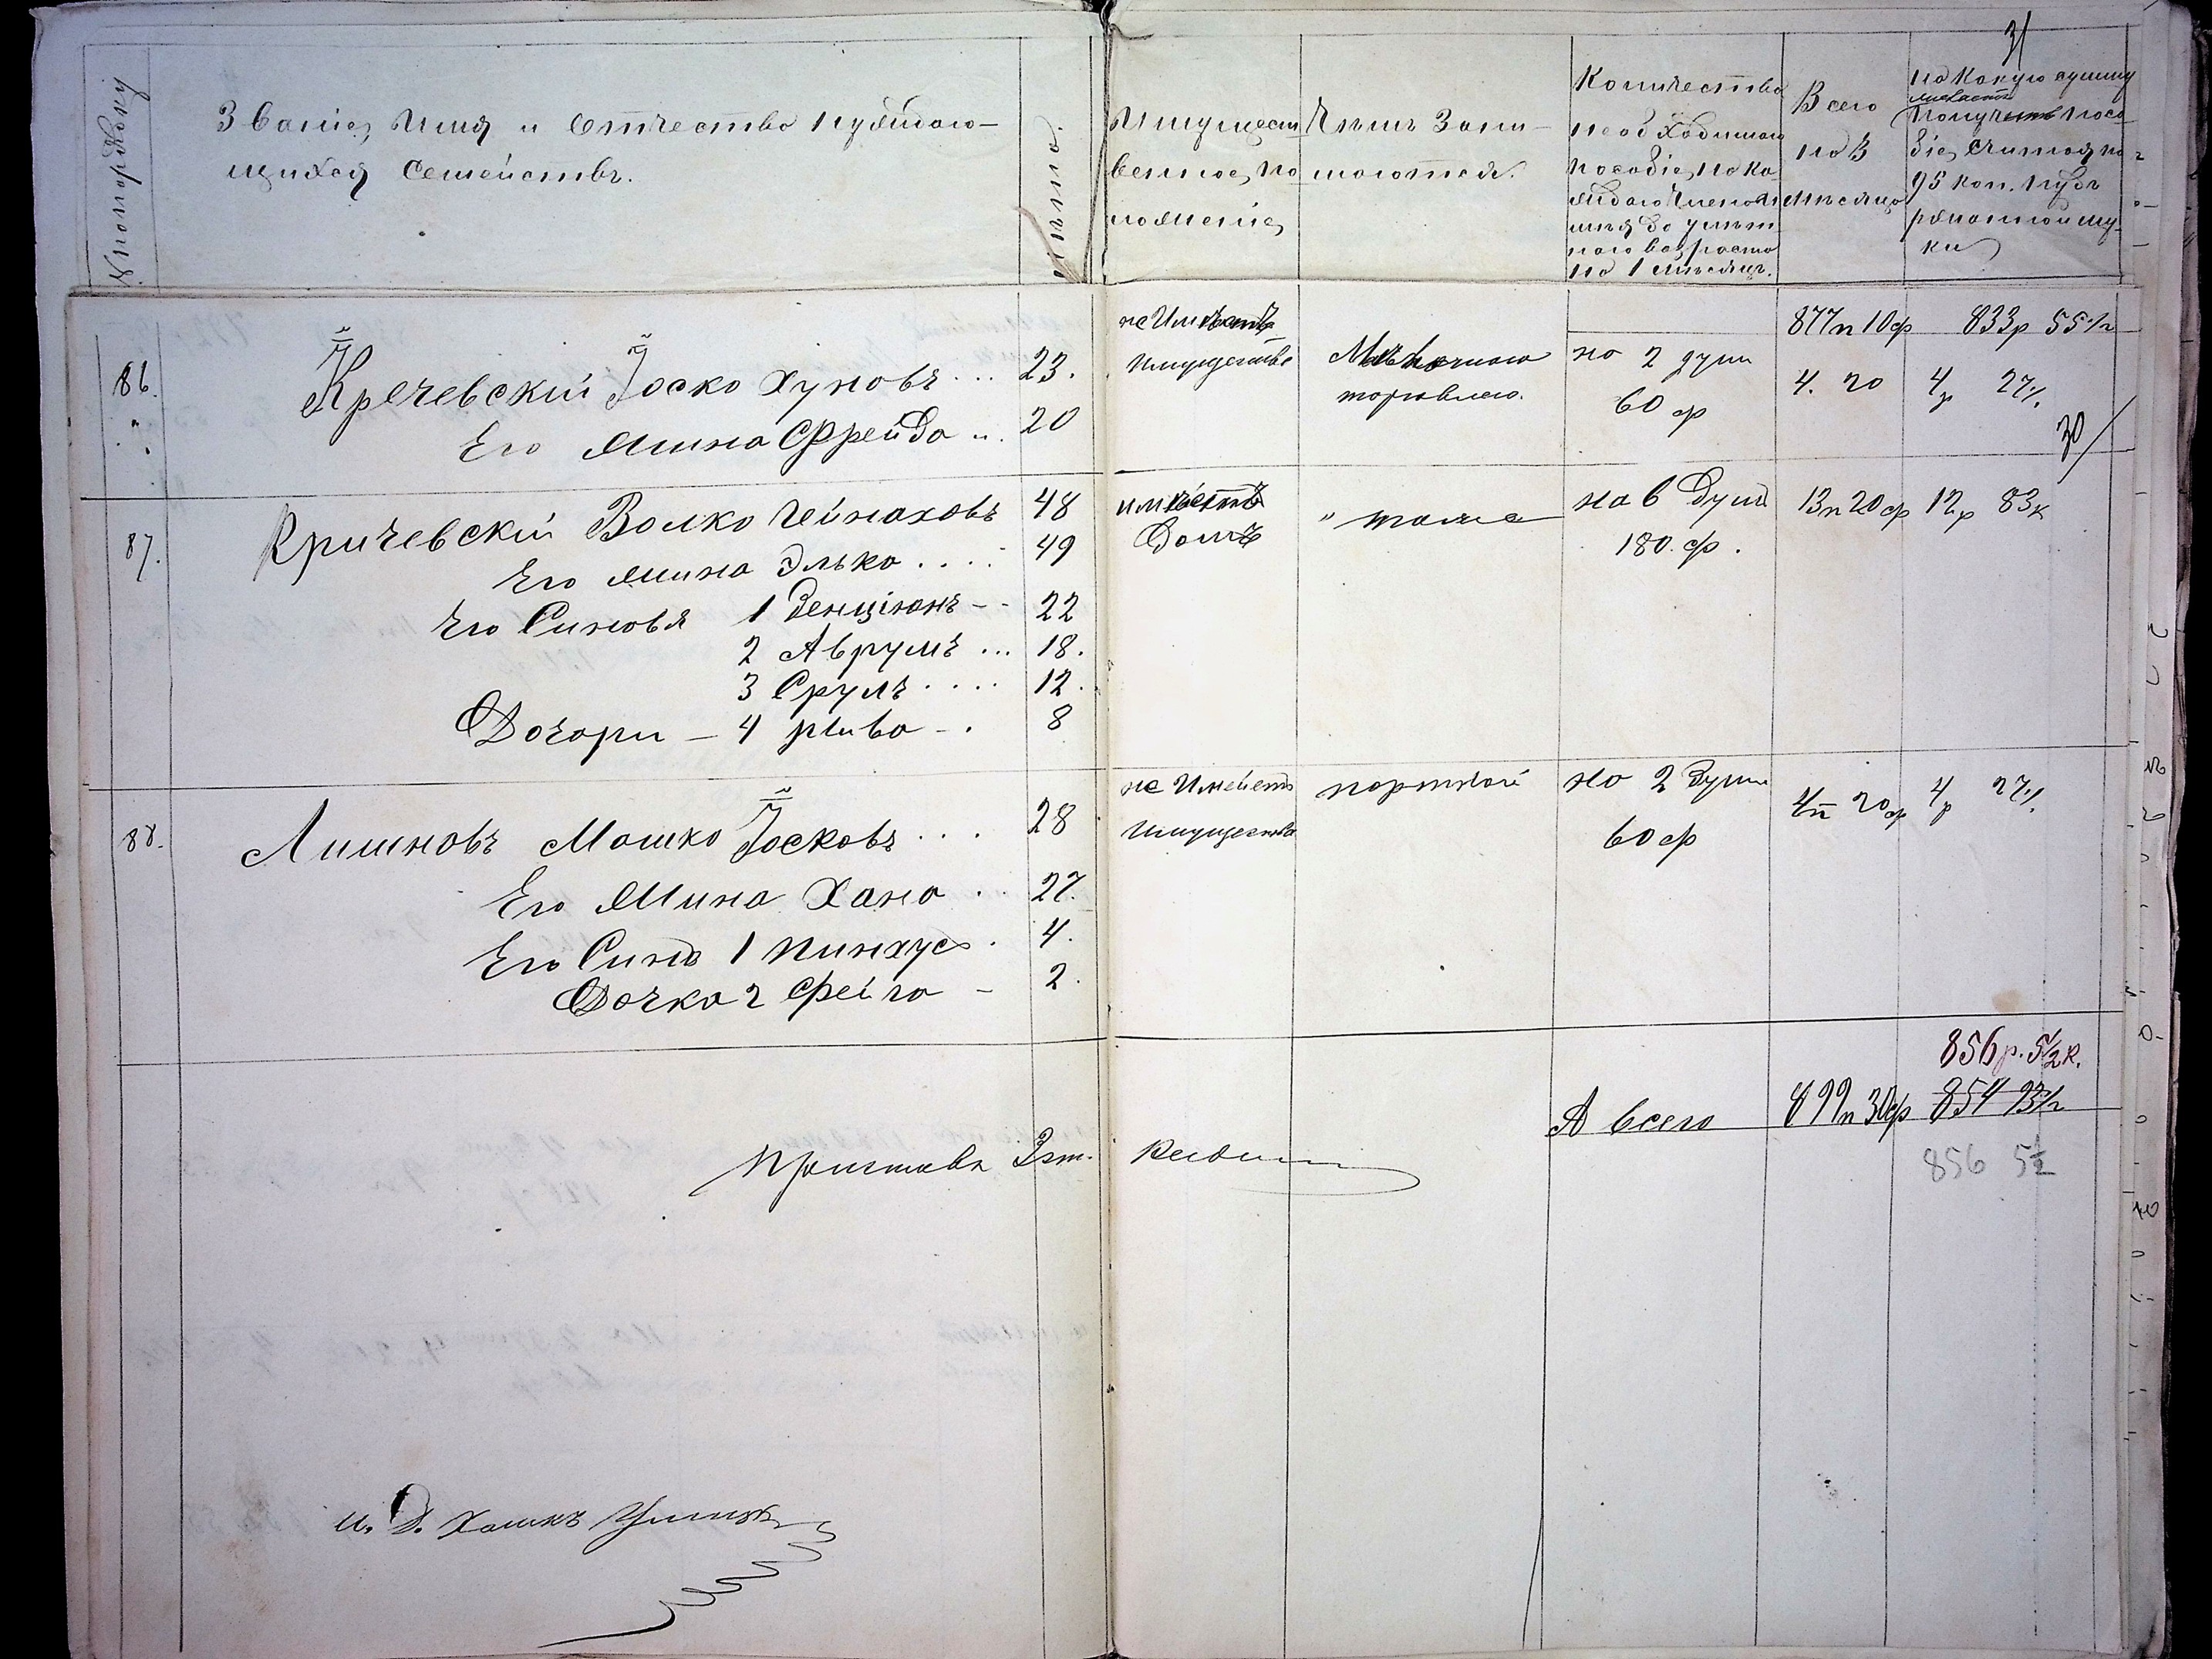 31
№ по порядку
Званіе, Имя и Отчество нуждаю-
щихся семействъ.
лѣта.
Имущест
венное, по
ложеніе,
Чѣмъ Зани-
маются.
Количество
необходимаго
пособіе, на ка
ждаго члена
на 1 мѣсяцъ.
Всего
на 3
мѣсяца
на какую сумму
пособіе, считая по
95 коп. пудъ
ржаной му-
ки
877п 10ф 833р 55 1/2
86. Кречевскій Іоско Хуновъ... 23. не Имѣетъ имущества Мѣлочною торговлею. на 2 души 60 ф 4. 20 4р 27 1/2
Его Жина Фрейда... 20
30/
87. Кричевскій Волко Чейнаховъ 48 имѣетъ Домъ " тоже на 6 душъ 180. ф. 13п 20ф 12р 83к
Его жина Элько.... 49
Его Синовя 1 Бенціонъ -- 22
2 Аврумъ... 18.
3 Срулъ.... 12.
Дочори - 4 рива -. 8
88. Лишновъ Мошко Іосковъ... 28 не Имеетъ Имущества портной на 2 души 60 ф 4п 20ф 4р 27 1/2
Его Жина Хана.. 27.
Его Синъ 1 Пинхус. 4.
Дочка 2 Фейга - 2.
856р. 5 1/2 к.
А всего 899п 30ф 854 93 1/2
856 5 1/2
Приставъ 2 ст.
И. Д.